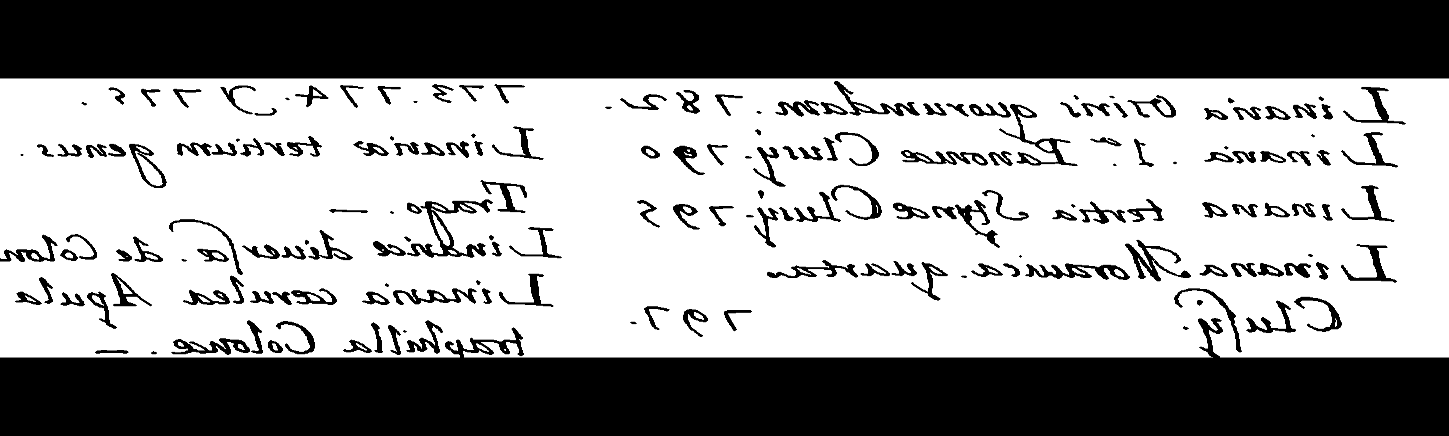 Linaria Osiris quorumdam. 782.
Linaria . 1.ª Panonœ Clusij. 790
Linaria tertia Clusij. 795
Linaria Moravica. quarta
Clusij. 797.
773. 774. 775.
Linariæ tertium genus.
Trago. —
Linariæ diversæ. de Colon
Linaria cærulea Apula
traphilla Colonæ. —